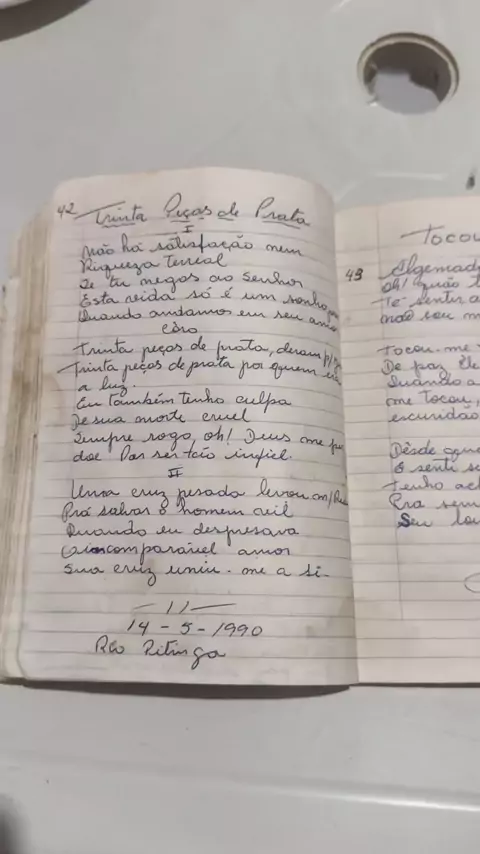 42 Trinta Peças de Prata
I
Não há satisfação nem
Riqueza terreal
Se tu negas ao Senhor
Esta vida só é um sonho
Quando andamos em seu amor
côro
Trinta peças de prata, deram p/
Trinta peças de prata por quem era
a luz.
Eu também tenho culpa
De sua morte cruel
Sempre rogo, oh! Deus me per
doe Por ser tão infiel.
II
Uma cruz pesada levou m/
Prá salvar o homem vil
Quando eu despresava
O incomparável amor
Sua cruz uniu-me a si-
-11-
14-5-1990
Rio Pitinga
Tocou
43 Algemad
oh! quão
Te sentir a
não sou m
Tocou-me
De paz Ele
Quando a
me Tocou,
escuridão
Dêsde que
o senti se
Tenho ac
Pra sem
Seu lou